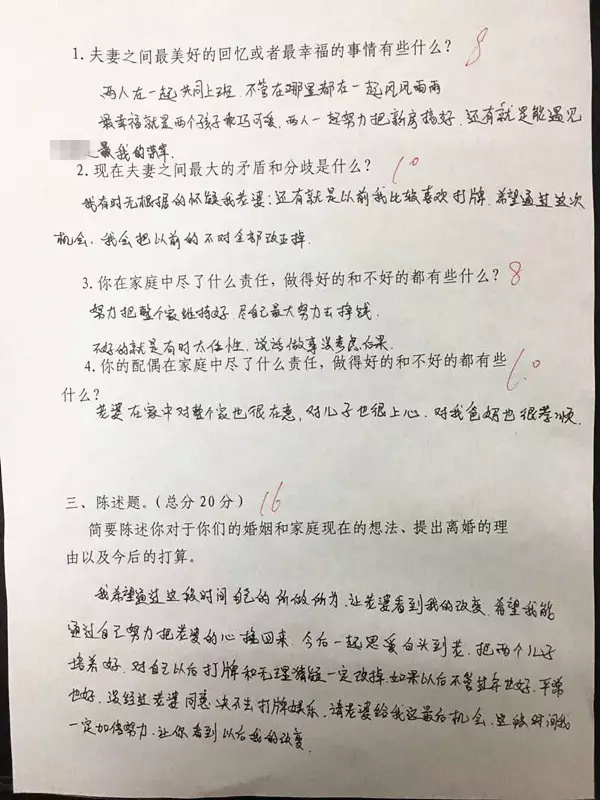 1.夫妻之间最美好的回忆或者最幸福的事情有些什么？ 8
两人在一起共同上班.不管在哪里都在一起风风雨雨
最幸福就是两个孩子乖巧可爱,两人一起努力把新房搞好.还有就是能遇见
是我的幸
2.现在夫妻之间最大的矛盾和分歧是什么？ 10
我有时无根据的怀疑我老婆;还有就是以前我比较喜欢打牌.希望通过这次
机会.我会把以前的不对全部改正掉.
3.你在家庭中尽了什么责任，做得好的和不好的都有些什么？ 8
努力把整个家维持好.尽自己最大努力去挣钱.
不好的就是有时太任性.说话做事没考虑后果.
4.你的配偶在家庭中尽了什么责任，做得好的和不好的都有些 10
什么？
老婆在家中对整个家也很在意,对儿子也很上心.对我爸妈也很孝顺.
三、陈述题。（总分20分） 16
简要陈述你对于你们的婚姻和家庭现在的想法、提出离婚的理
由以及今后的打算。
我希望通过这段时间自己的所做所为.让老婆看到我的改变.希望我能
通过自己努力把老婆的心挽回来.今后一起恩爱白头到老.把两个儿子
培养好.对自己以后打牌和无理猜疑一定改掉.如果以后不管过年也好.平常
也好.没经过老婆同意决不去打牌娱乐.请老婆给我这最后机会.这段时间我
一定加倍努力.让你看到以后我的改变.